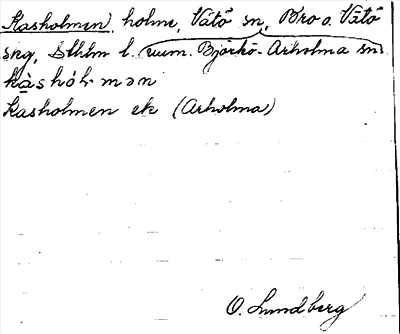 Kasholmen, holme, Vätö sn, Bro o. Vätö
skg, Sthlm l. (uum. Björkö-Arholma sn)
kàshól·mən
Kasholmen ek (Arholma)
O. Lundberg